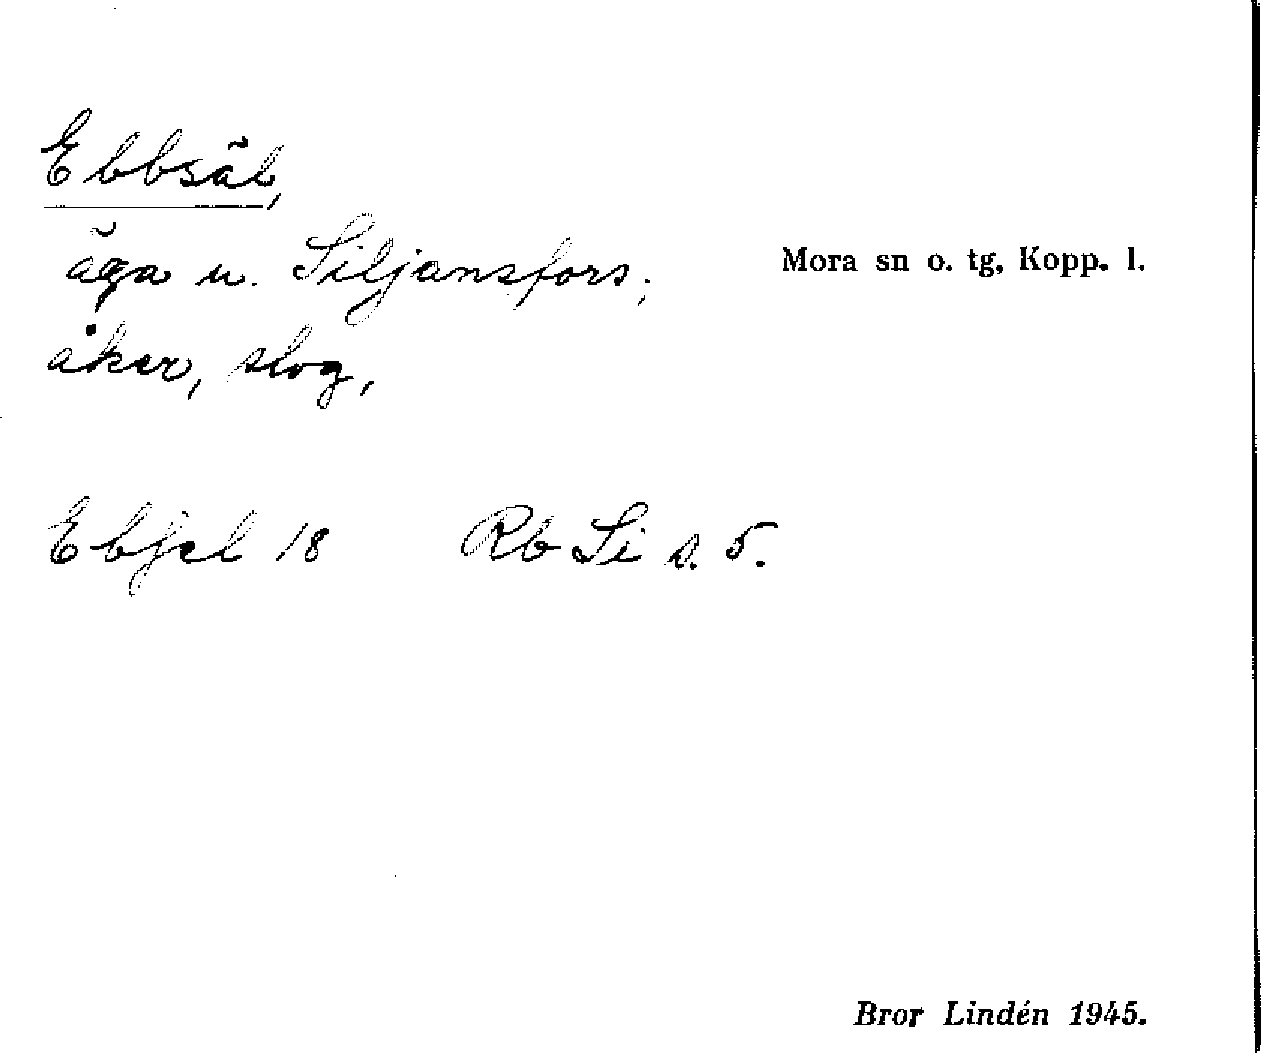 Ebbsäl,
äga u. Siljansfors;
Mora sn o. tg, Kopp. l.
åker, slog,
Ebfjel 18 Rb Si s. 5.
Bror Lindén 1945.